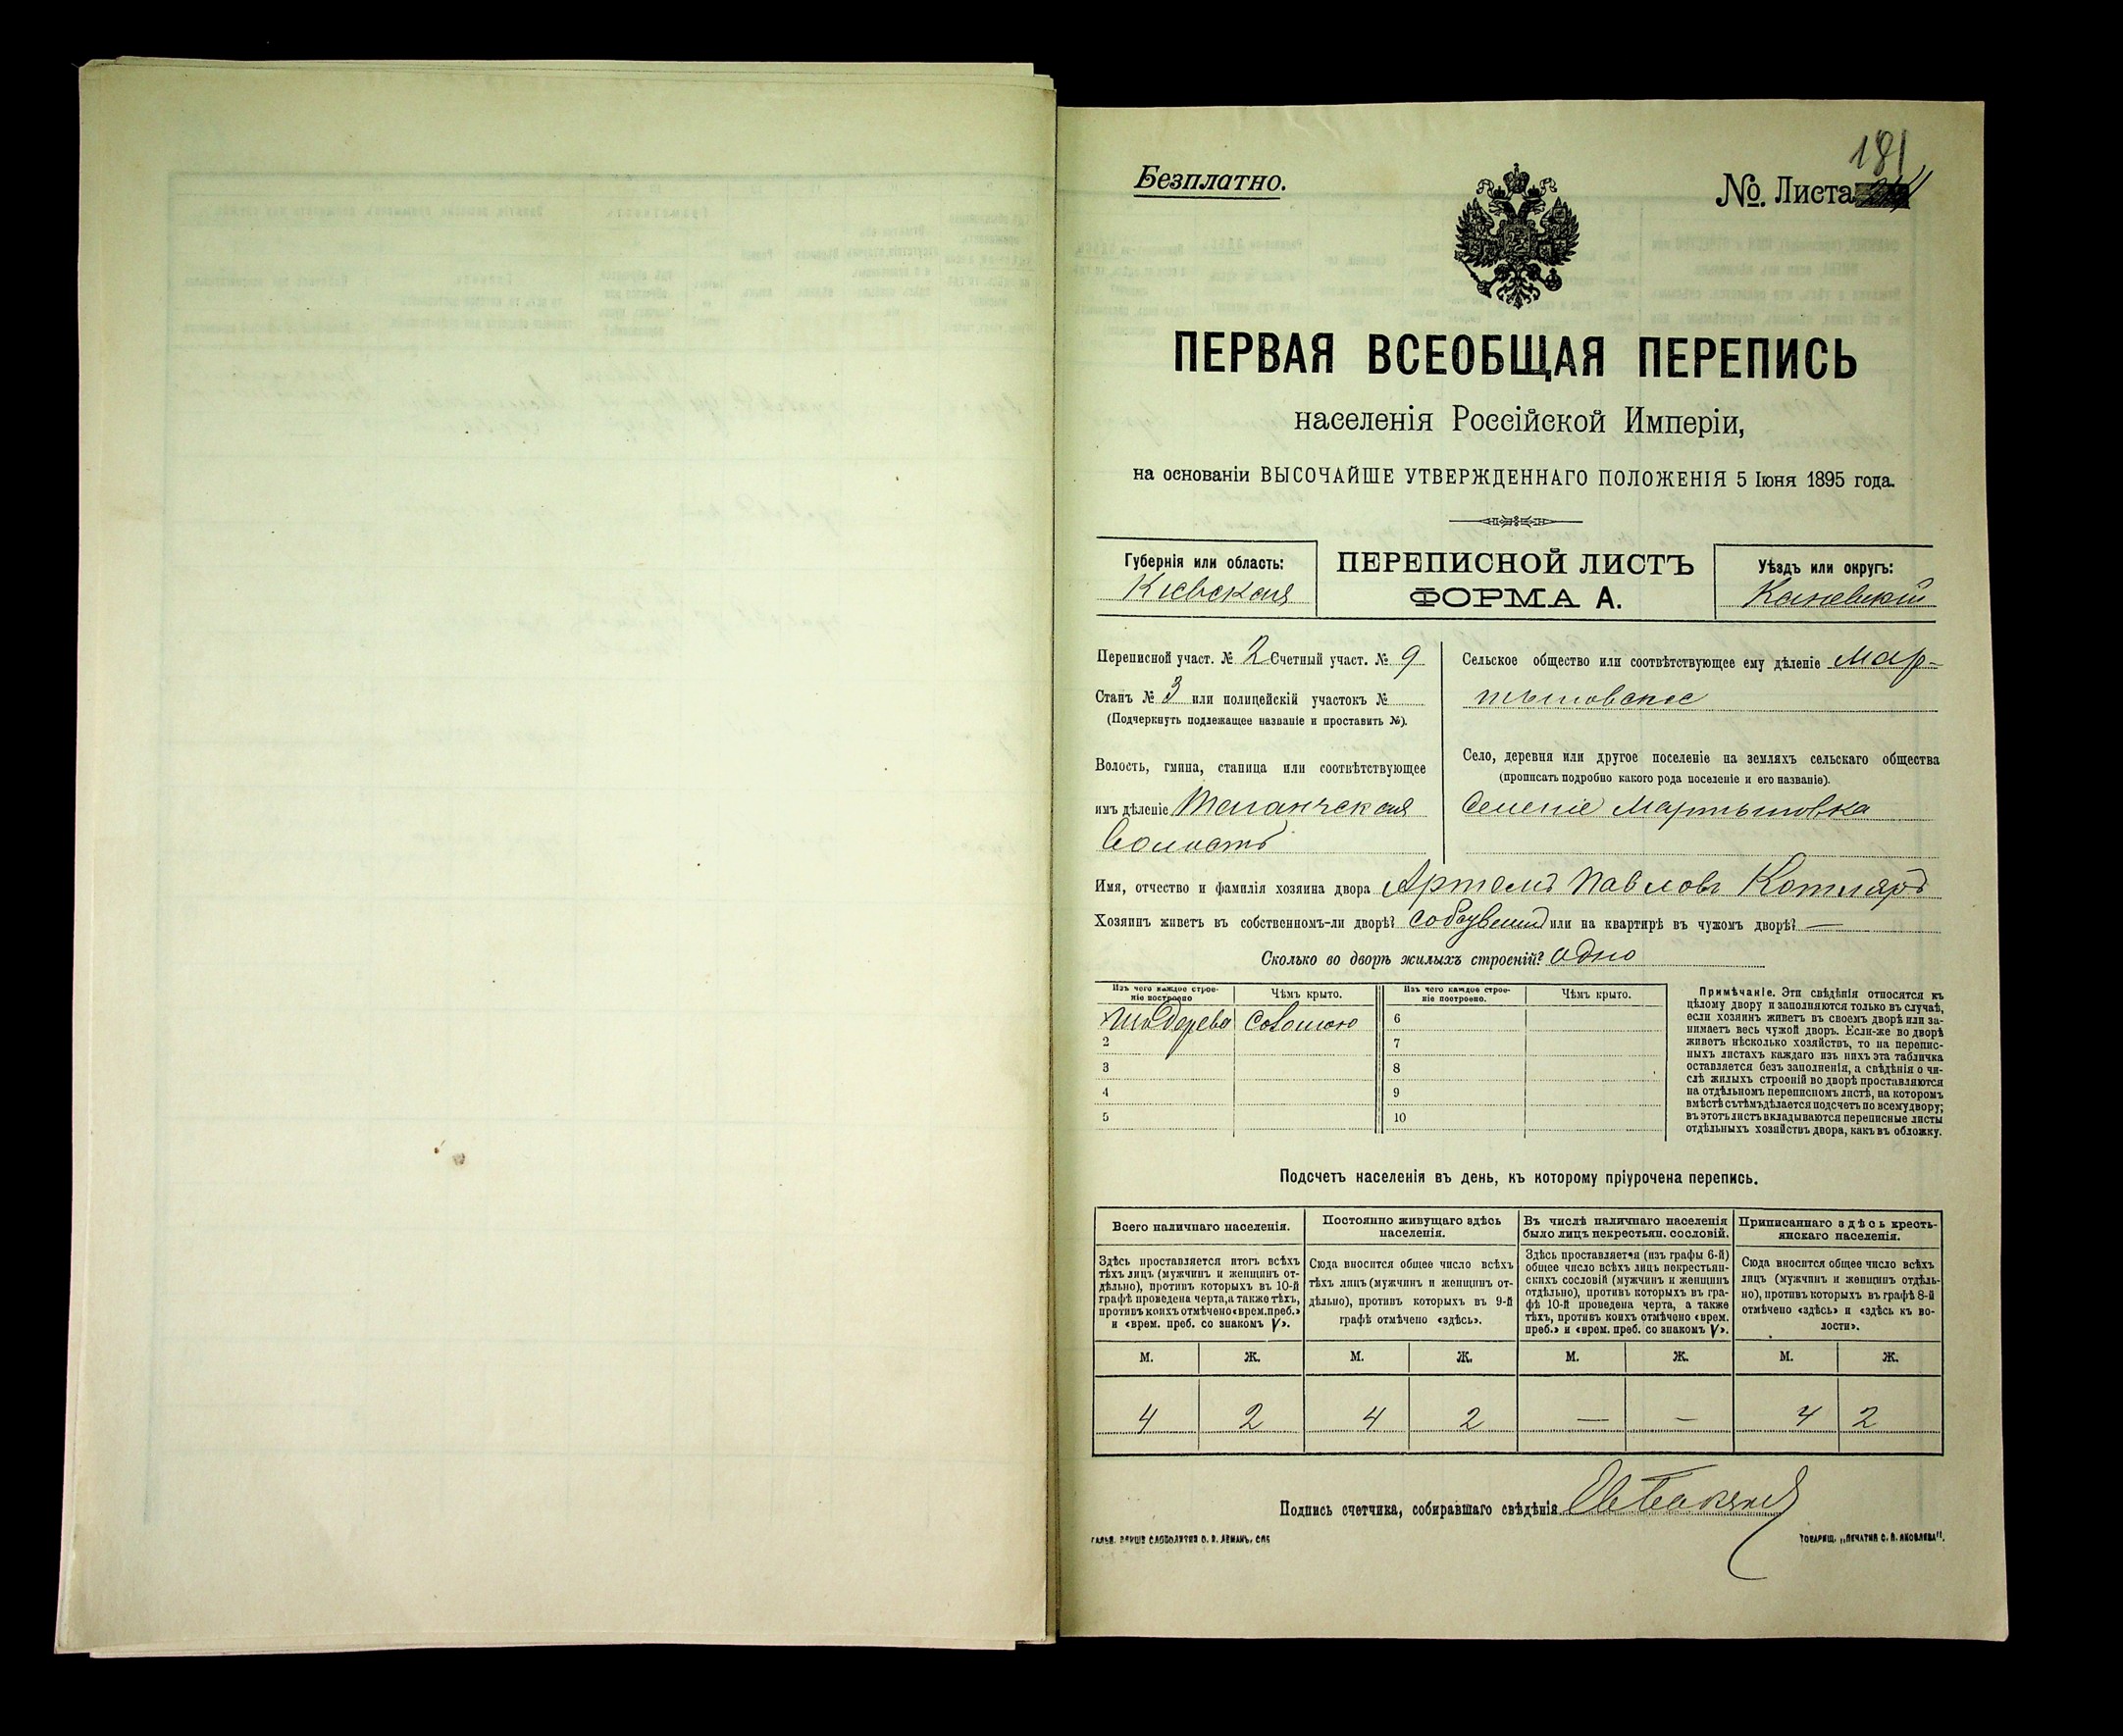 181
Безплатно.
№. Листа
ПЕРВАЯ ВСЕОБЩАЯ ПЕРЕПИСЬ
населенія Россійской Имперіи,
на основаніи ВЫСОЧАЙШЕ УТВЕРЖДЕННАГО ПОЛОЖЕНІЯ 5 Іюня 1895 года.
Губернія или область:
Кіевская
ПЕРЕПИСНОЙ ЛИСТЪ
ФОРМА А.
Уѣздъ или округъ:
Каневскій
Переписной участ. № 2 Счетный участ. № 9
Станъ № 3 или полицейскій участокъ №
(Подчеркнуть подлежащее названіе и проставить №).
Волость, гмина, станица или соотвѣтствующее
имъ дѣленіе Таганчская
Волость
Сельское общество или соотвѣтствующее ему дѣленіе Мар-
тыновское
Село, деревня или другое поселеніе на земляхъ сельскаго общества
(прописать подробно какого рода поселеніе и его названіе).
Селеніе Мартыновка
Имя, отчество и фамилія хозяина двора Артемъ Павловъ Котляръ
Хозяинъ живетъ въ собственномъ-ли дворѣ? или на квартирѣ въ чужомъ дворѣ? —
Сколько во дворѣ жилыхъ строеній? одно
Изъ чего каждое строе-
ніе построено
Чѣмъ крыто.
Изъ чего каждое строе-
ніе построено.
Чѣмъ крыто.
дерева соломою 6
2 7
3 8
4 9
5 10
Примѣчаніе. Эти свѣдѣнія относятся къ
цѣлому двору и заполняются только въ случаѣ,
если хозяинъ живетъ въ своемъ дворѣ или за-
нимаетъ весь чужой дворъ. Если-же во дворѣ
живетъ нѣсколько хозяйствъ, то на перепис-
ныхъ листахъ каждаго изъ нихъ эта табличка
оставляется безъ заполненія, а свѣдѣнія о чи-
слѣ жилыхъ строеній во дворѣ проставляются
на отдѣльномъ переписномъ листѣ, на которомъ
вмѣстѣ съ тѣмъ дѣлается подсчетъ по всему двору;
въ этотъ листъ вкладываются переписные листы
отдѣльныхъ хозяйствъ двора, какъ въ обложку.
Подсчетъ населенія въ день, къ которому пріурочена перепись.
Всего наличнаго населенія.
Здѣсь проставляется итогъ всѣхъ
тѣхъ лицъ (мужчинъ и женщинъ от-
дѣльно), противъ которыхъ въ 10-й
графѣ проведена черта, а также тѣхъ,
противъ коихъ отмѣчено «врем. преб.»
и «врем. преб. со знакомъ V».
Постоянно живущаго здѣсь
населенія.
Сюда вносится общее число всѣхъ
тѣхъ лицъ (мужчинъ и женщинъ от-
дѣльно), противъ которыхъ въ 9-й
графѣ отмѣчено «здѣсь».
Въ числѣ наличнаго населенія
было лицъ некрестьян. сословій.
Здѣсь проставляется (изъ графы 6-й)
общее число всѣхъ лицъ некрестьян-
скихъ сословій (мужчинъ и женщинъ
отдѣльно), противъ которыхъ въ гра-
фѣ 10-й проведена черта, а также
тѣхъ, противъ коихъ отмѣчено «врем.
преб.» и «врем. преб. со знакомъ V».
Приписаннаго здѣсь кресть-
янскаго населенія.
Сюда вносится общее число всѣхъ
лицъ (мужчинъ и женщинъ отдѣль-
но), противъ которыхъ въ графѣ 8-й
отмѣчено «здѣсь» и «здѣсь къ во-
лости».
М. Ж. М. Ж. М. Ж. М. Ж.
4 2 4 2 — — 4 2
Подпись счетчика, собиравшаго свѣдѣнія
ТОВАРИЩ. „ПЕЧАТНЯ С. П. ЯКОВЛЕВА".